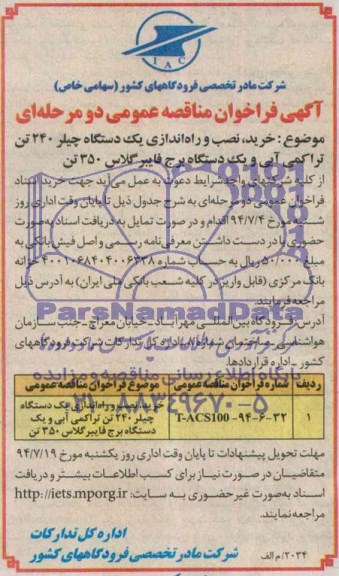 IAC
شرکت مادر تخصصی فرودگاههای کشور (سهامی خاص)
آگهی فراخوان مناقصه عمومی دو مرحله‌ای
موضوع: خرید، نصب و راه‌اندازی یک دستگاه چیلر ۲۴۰ تن
تراکمی آبی و یک دستگاه برج فایبرگلاس ۳۵۰ تن
از کلیه شرکتهای واجدشرایط دعوت به عمل می‌آید جهت خرید اسناد
فراخوان عمومی دو مرحله‌ای به شرح جدول ذیل تا پایان وقت اداری روز
شنبه مورخ ۹۴/۷/۴ اقدام و در صورت تمایل به دریافت اسناد به‌صورت
حضوری با در دست داشتن معرفی‌نامه رسمی و اصل فیش بانکی به
مبلغ ۵۰/۰۰۰ ریال به حساب شماره ۴۰۰۱۰۶۸۴۰۴۰۰۶۳۳۸ خزانه
بانک مرکزی (قابل واریز در کلیه شعب بانکی ملی ایران) به آدرس ذیل
مراجعه فرمایند.
ParsNamadData
آدرس: فرودگاه بین‌المللی مهرآباد - خیابان معراج - جنب سازمان
هواشناسی - ساختمان شماره ۸ - اداره کل تدارکات شرکت فرودگاههای
کشور - اداره قراردادها.
پایگاه اطلاع رسانی مناقصه و مزایده
۰۲۱-۸۸۳۴۹۶۷۰-۵
ردیف شماره فراخوان مناقصه عمومی موضوع فراخوان مناقصه عمومی
۱ T-ACS100 -۹۴-۶-۳۲ خرید، نصب و راه‌اندازی یک دستگاه
چیلر ۲۴۰ تن تراکمی آبی و یک
دستگاه برج فایبرگلاس ۳۵۰ تن
مهلت تحویل پیشنهادات تا پایان وقت اداری روز یکشنبه مورخ ۹۴/۷/۱۹
متقاضیان در صورت نیاز برای کسب اطلاعات بیشتر و دریافت
اسناد به‌صورت غیرحضوری به سایت: http://iets.mporg.ir
مراجعه نمایند.
اداره کل تدارکات
شرکت مادر تخصصی فرودگاههای کشور
۲۰۳۴/م الف